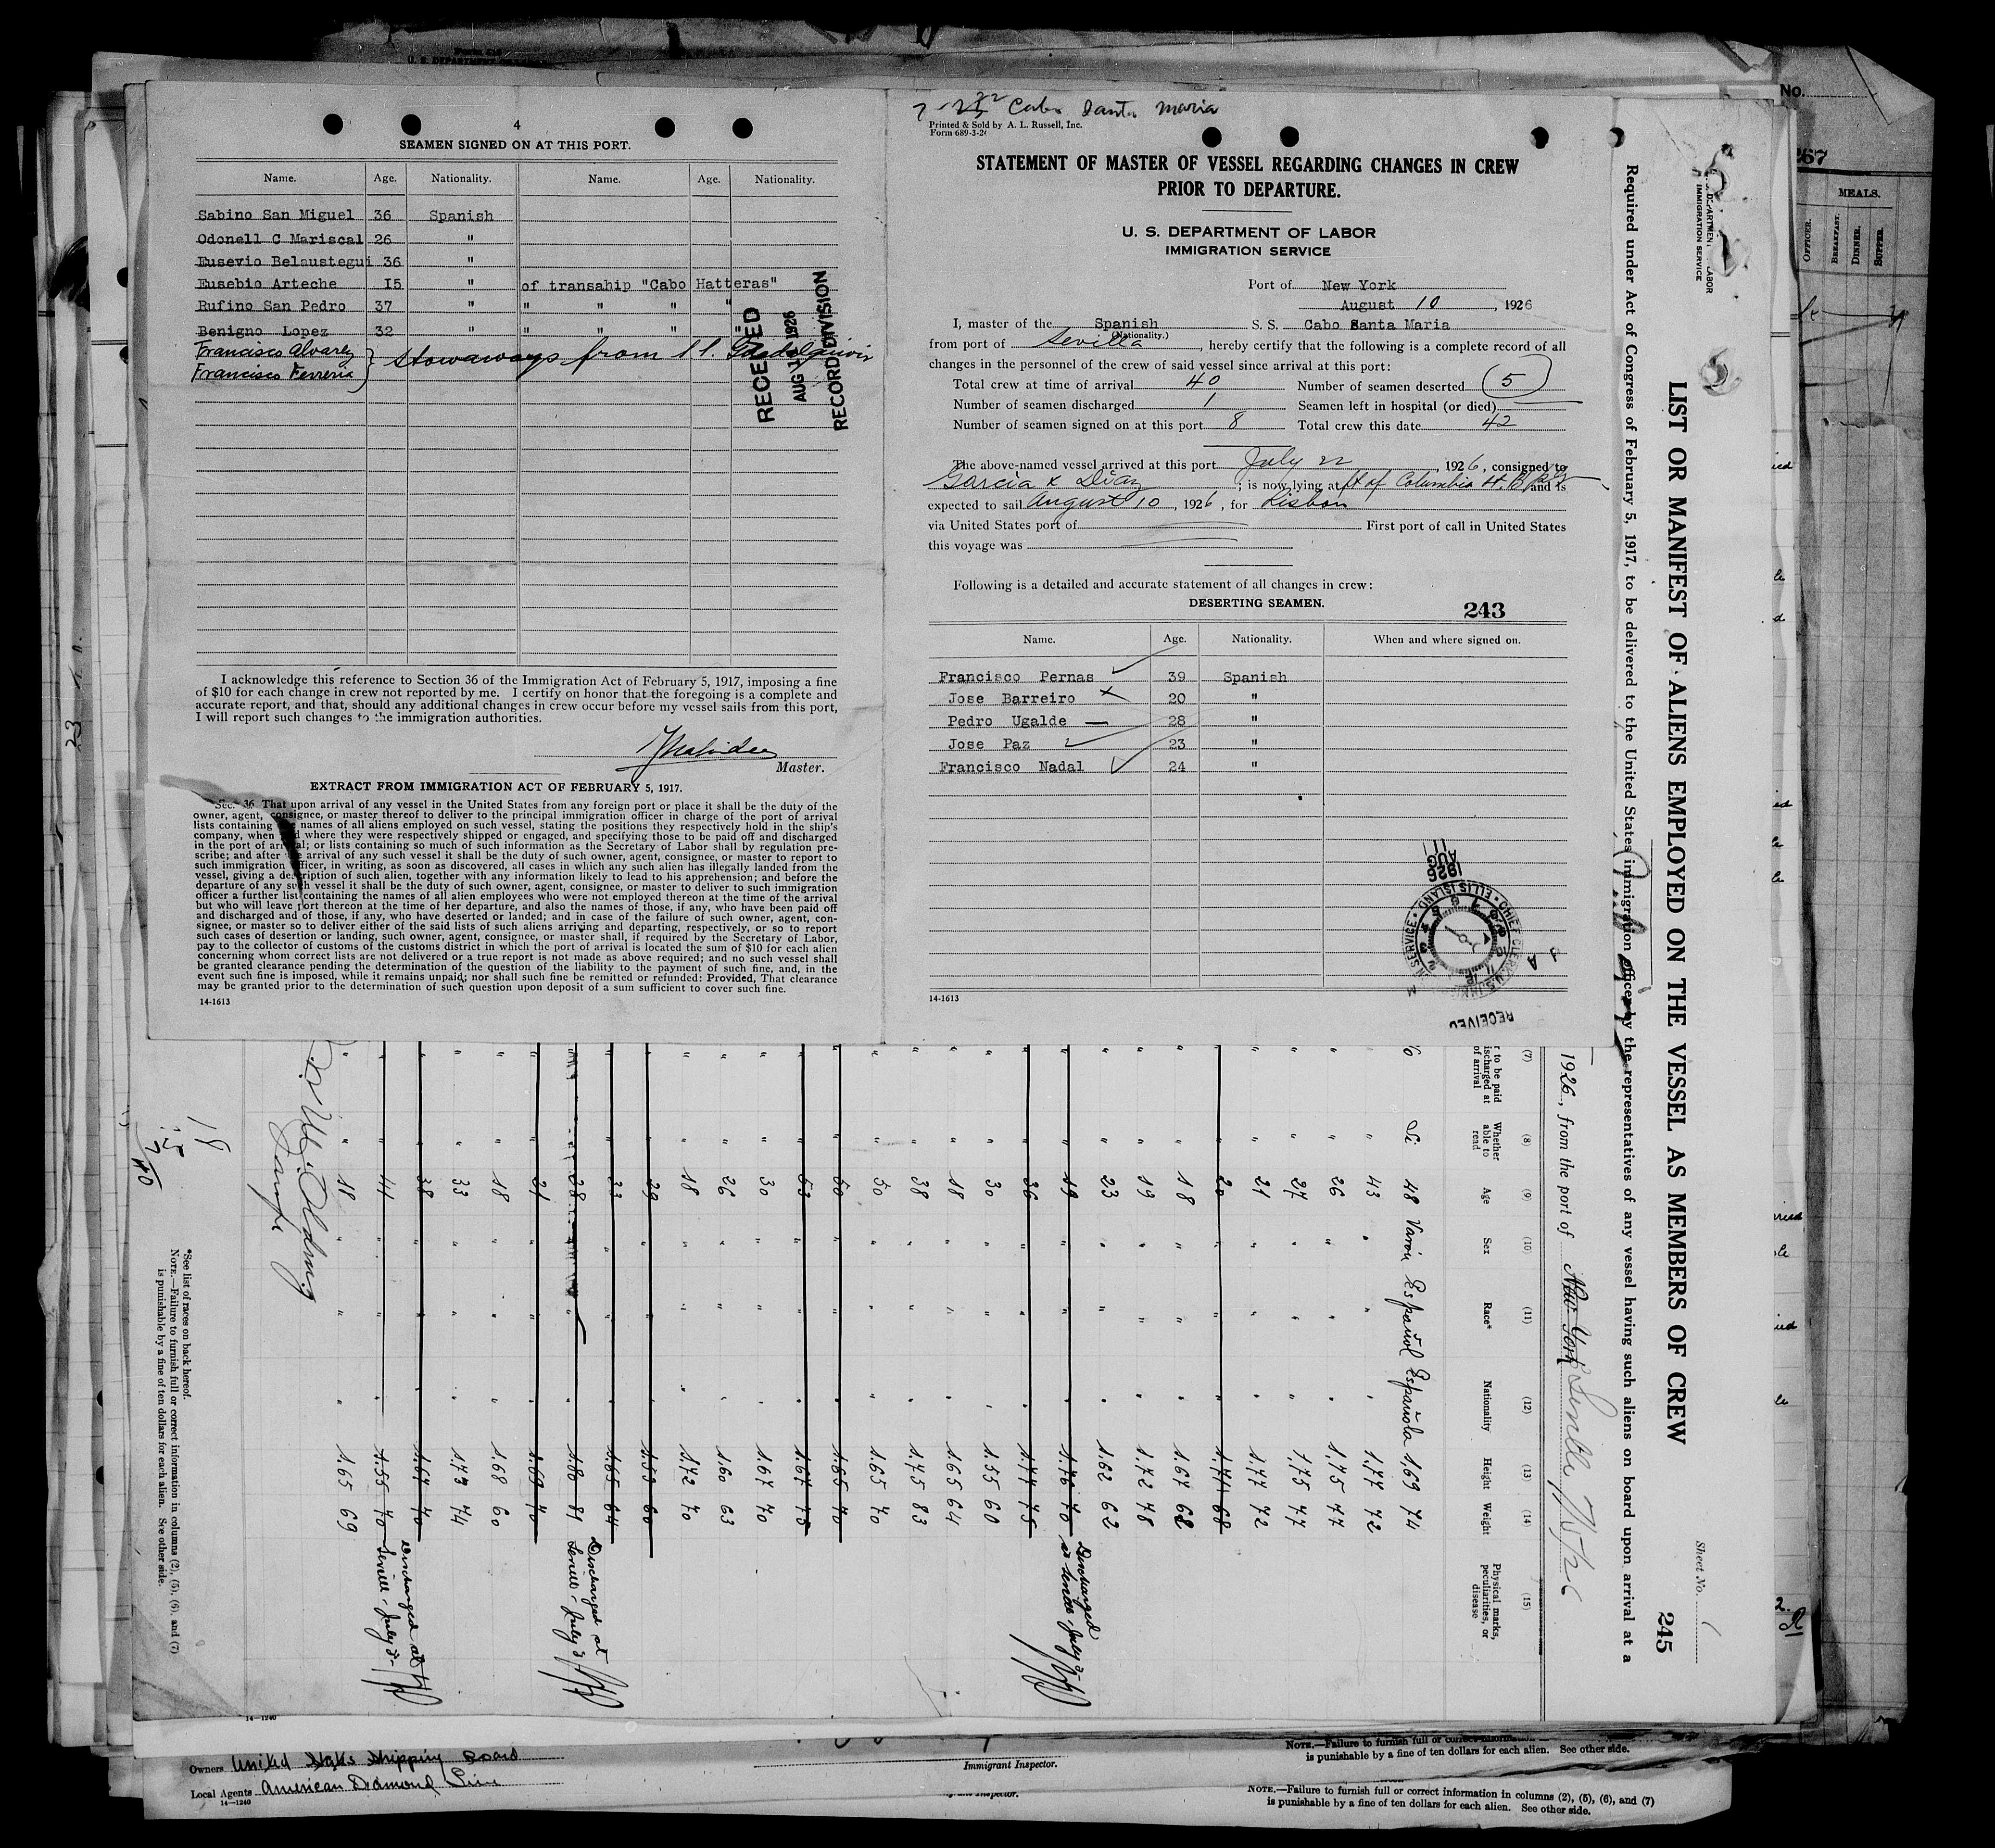 4
SEAMEN SIGNED ON AT THIS PORT.
Name. Age. Nationality. Name. Age. Nationality.
Sabino San Miguel 36 Spanish
Odonell C Mariscal 26 "
Eusevio Belaustegui 36 "
Eusebio Arteche 15 " of transship "Cabo Hatteras"
Rufino San Pedro 37 " " " " "
Benigno Lopez 32 " " " " "
Francisco Alvarez
Francisco Ferreria } stowaways from s s. Guadalquivir
RECEIVED
AUG 1926
RECORD DIVISION
I acknowledge this reference to Section 36 of the Immigration Act of February 5, 1917, imposing a fine
of $10 for each change in crew not reported by me. I certify on honor that the foregoing is a complete and
accurate report, and that, should any additional changes in crew occur before my vessel sails from this port,
I will report such changes to the immigration authorities.
Master.
EXTRACT FROM IMMIGRATION ACT OF FEBRUARY 5, 1917.
Sec. 36. That upon arrival of any vessel in the United States from any foreign port or place it shall be the duty of the
owner, agent, consignee, or master thereof to deliver to the principal immigration officer in charge of the port of arrival
lists containing names of all aliens employed on such vessel, stating the positions they respectively hold in the ship's
company, when and where they were respectively shipped or engaged, and specifying those to be paid off and discharged
in the port of arrival; or lists containing so much of such information as the Secretary of Labor shall by regulation pre-
scribe; and after arrival of any such vessel it shall be the duty of such owner, agent, consignee, or master to report to
such immigration officer, in writing, as soon as discovered, all cases in which any such alien has illegally landed from the
vessel, giving a description of such alien, together with any information likely to lead to his apprehension; and before the
departure of any such vessel it shall be the duty of such owner, agent, consignee, or master to deliver to such immigration
officer a further list containing the names of all alien employees who were not employed thereon at the time of the arrival
but who will leave port thereon at the time of her departure, and also the names of those, if any, who have been paid off
and discharged and of those, if any, who have deserted or landed; and in case of the failure of such owner, agent, con-
signee, or master so to deliver either of the said lists of such aliens arriving and departing, respectively, or so to report
such cases of desertion or landing, such owner, agent, consignee, or master shall, if required by the Secretary of Labor,
pay to the collector of customs of the customs district in which the port of arrival is located the sum of $10 for each alien
concerning whom correct lists are not delivered or a true report is not made as above required; and no such vessel shall
be granted clearance pending the determination of the question of the liability to the payment of such fine, and, in the
event such fine is imposed, while it remains unpaid; nor shall such fine be remitted or refunded: Provided, That clearance
may be granted prior to the determination of such question upon deposit of a sum sufficient to cover such fine.
14-1613
Cabo Santa Maria
Printed & Sold by A. L. Russell, Inc.
Form 689-3-26
STATEMENT OF MASTER OF VESSEL REGARDING CHANGES IN CREW
PRIOR TO DEPARTURE.
U. S. DEPARTMENT OF LABOR
IMMIGRATION SERVICE
Port of New York
August 10, 1926
I, master of the Spanish S. S. Cabo Santa Maria
(Nationality.)
from port of Sevilla, hereby certify that the following is a complete record of all
changes in the personnel of the crew of said vessel since arrival at this port:
Total crew at time of arrival 40 Number of seamen deserted 5
Number of seamen discharged 1 Seamen left in hospital (or died)
Number of seamen signed on at this port 8 Total crew this date 42
The above-named vessel arrived at this port July 22, 1926, consigned to
Garcia & Diaz; is now lying at ft of Columbia St. B'klyn and is
expected to sail August 10, 1926, for Lisbon
via United States port of First port of call in United States
this voyage was
Following is a detailed and accurate statement of all changes in crew:
DESERTING SEAMEN. 243
Name. Age. Nationality. When and where signed on.
Francisco Pernas 39 Spanish
Jose Barreiro 20 "
Pedro Ugalde 28 "
Jose Paz 23 "
Francisco Nadal 24 "
1926
AUG
11
RECEIVED
14-1613
LIST OR MANIFEST OF ALIENS EMPLOYED ON THE VESSEL AS MEMBERS OF CREW
Required under Act of Congress of February 5, 1917, to be delivered to the United States immigration officer by the representatives of any vessel having such aliens on board upon arrival at a
IMMIGRATION SERVICE
Sheet No. 1
245
1926, from the port of New York Seville 7/5/26
(7) (8) (9) (10) (11) (12) (13) (14) (15)
Whether able to read
Age
Sex
Race*
Nationality
Height
Weight
Physical marks, peculiarities, or disease
Si 48 Varón Español Española 1,69 74
" 43 " " " 1,77 72
" 26 " " " 1,75 77
" 27 " " " 1,75 77
" 21 " " " 1,77 72
" 20 " " " 1,71 68
" 18 " " " 1,67 68
" 19 " " " 1,72 78
" 23 " " " 1,62 62
" 19 " " " 1,76 70 Discharged at Seville July 3-
" 36 " " " 1,77 75
" 30 " " " 1,55 60
" 18 " " " 1,65 64
" 38 " " " 1,75 83
" 50 " " " 1,63 70
" 50 " " " 1,65 70
" 53 " " " 1,67 75
" 30 " " " 1,67 70
" 26 " " " 1,60 63
" 18 " " " 1,72 70
" 29 " " " 1,53 60
" 33 " " " 1,65 64
" 38 " " " 1,80 81 Discharged at Seville - July 3
" 21 " " " 1,69 70
" 18 " " " 1,68 60
" 33 " " " 1,73 74
" 38 " " " 1,67 70
" 41 " " " 1,55 70 Discharged at Seville - July 3-
" 18 " " " 1,65 69
*See list of races on back hereof.
NOTE.—Failure to furnish full or correct information in columns (2), (5), (6), and (7)
is punishable by a fine of ten dollars for each alien. See other side.
14—1240
No.
267
MEALS.
OFFICER. BREAKFAST. DINNER. SUPPER.
Owners United States Shipping Board
Local Agents American Diamond Line
14—1240
Immigrant Inspector.
NOTE.—Failure to furnish full or correct information
is punishable by a fine of ten dollars for each alien. See other side.
NOTE.—Failure to furnish full or correct information in columns (2), (5), (6), and (7)
is punishable by a fine of ten dollars for each alien. See other side.